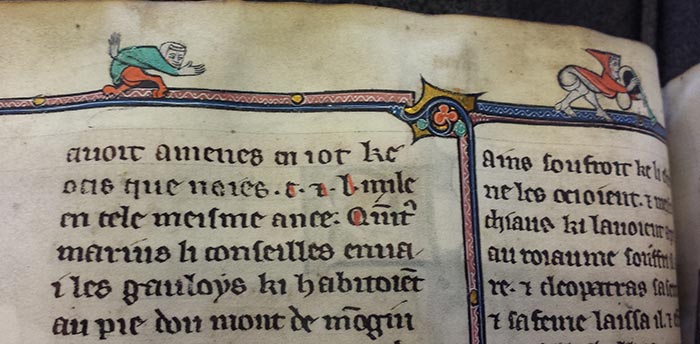 auoit amenes en iot ke
ocis que naies . c . ⁊ . l . mile
en cele meisme anee: Quīt⁹
marius li conseilles enua
i les gauloys ki habitoiēt
au pie dou mont de mōgiu
Ains souffroit ke li
ne les ocioient . ⁊
chiaus ki lauoient
au roiaume souffri
re . ⁊ cleopatras sa
⁊ sa feme laissa il . ⁊